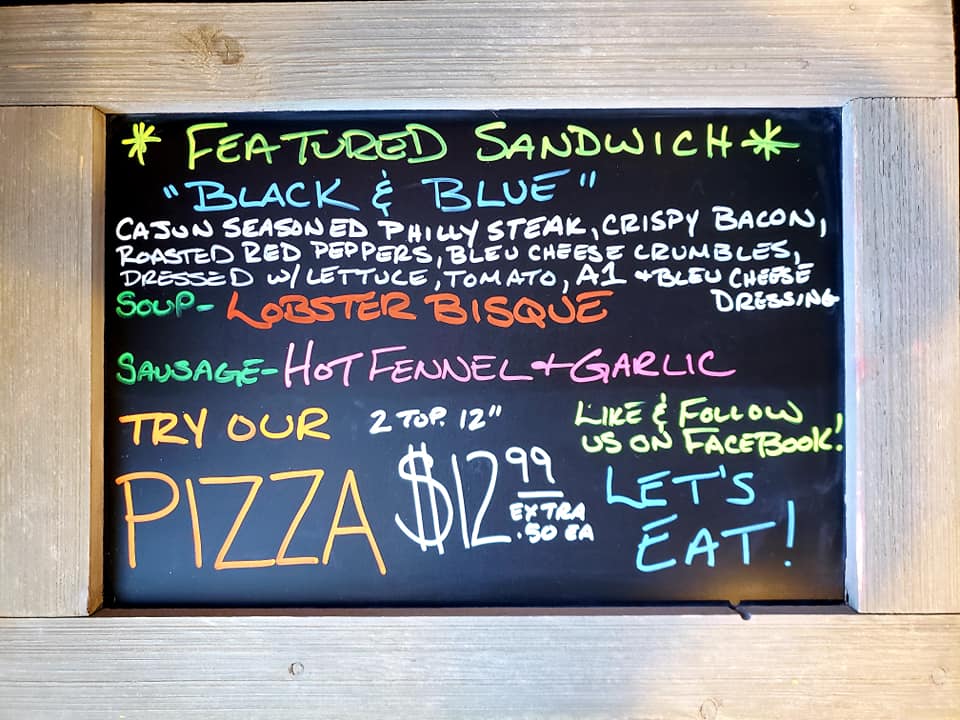 * FEATURED SANDWICH *
"BLACK & BLUE"
CAJUN SEASONED PHILLY STEAK, CRISPY BACON,
ROASTED RED PEPPERS, BLEU CHEESE CRUMBLES,
DRESSED W/ LETTUCE, TOMATO, A1 + BLEU CHEESE
DRESSING
SOUP- LOBSTER BISQUE
SAUSAGE- HOT FENNEL + GARLIC
TRY OUR
PIZZA
2 TOP. 12"
$12.99
EXTRA
.50 EA
LIKE & FOLLOW
US ON FACEBOOK!
LET'S
EAT!